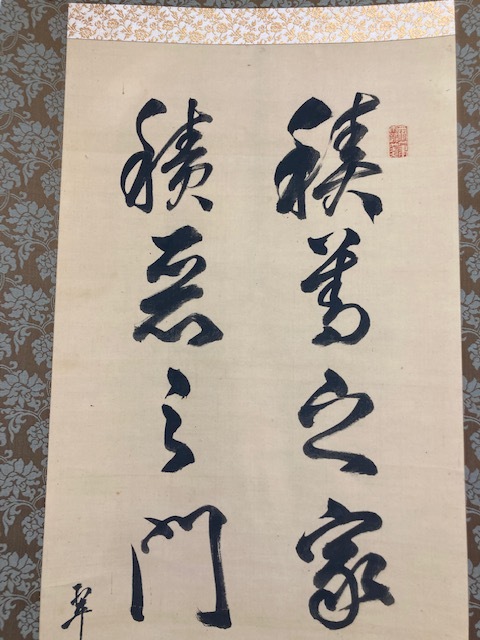 積善之家
積悪之門